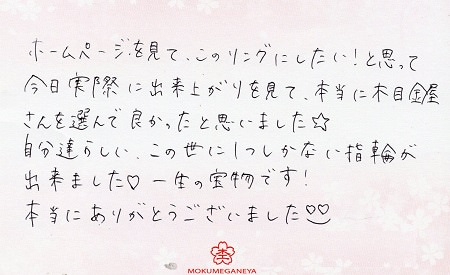 ホームページを見て、このリングにしたい！と思って
今日実際に出来上がりを見て、本当に木目金屋
さんを選んで良かったと思いました☆
自分達らしい、この世に1つしかない指輪が
出来ました♡ 一生の宝物です！
本当にありがとうございました♡♡
MOKUMEGANEYA